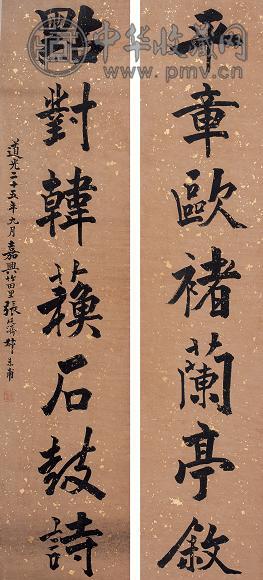 平章歐褚蘭亭敘
點對韓蘓石鼓詩
道光二十五年九月嘉興竹田里張廷濟叔未甫
中华收藏网
www.pmv.cn